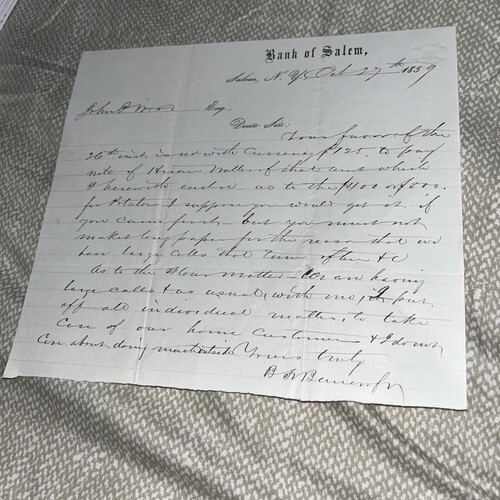 Bank of Salem,
Salem, N.Y. Oct 27th 1859
John Esq.
Dear Sir:
Your favor of the
26th inst is recd with Currency $125. to pay
note of Hiram of that amt which
I herewith enclose as to the $400 or $500.
for I suppose you would get it if
you but you must not
make long paper for the reason that we
have large calls that &c
As to the matter - We are having
large calls & as usual, with me, I put
off all individual matters, to take
Care of our home Customers & I do not
Care about doing much outside Yours truly
B F Bancroft